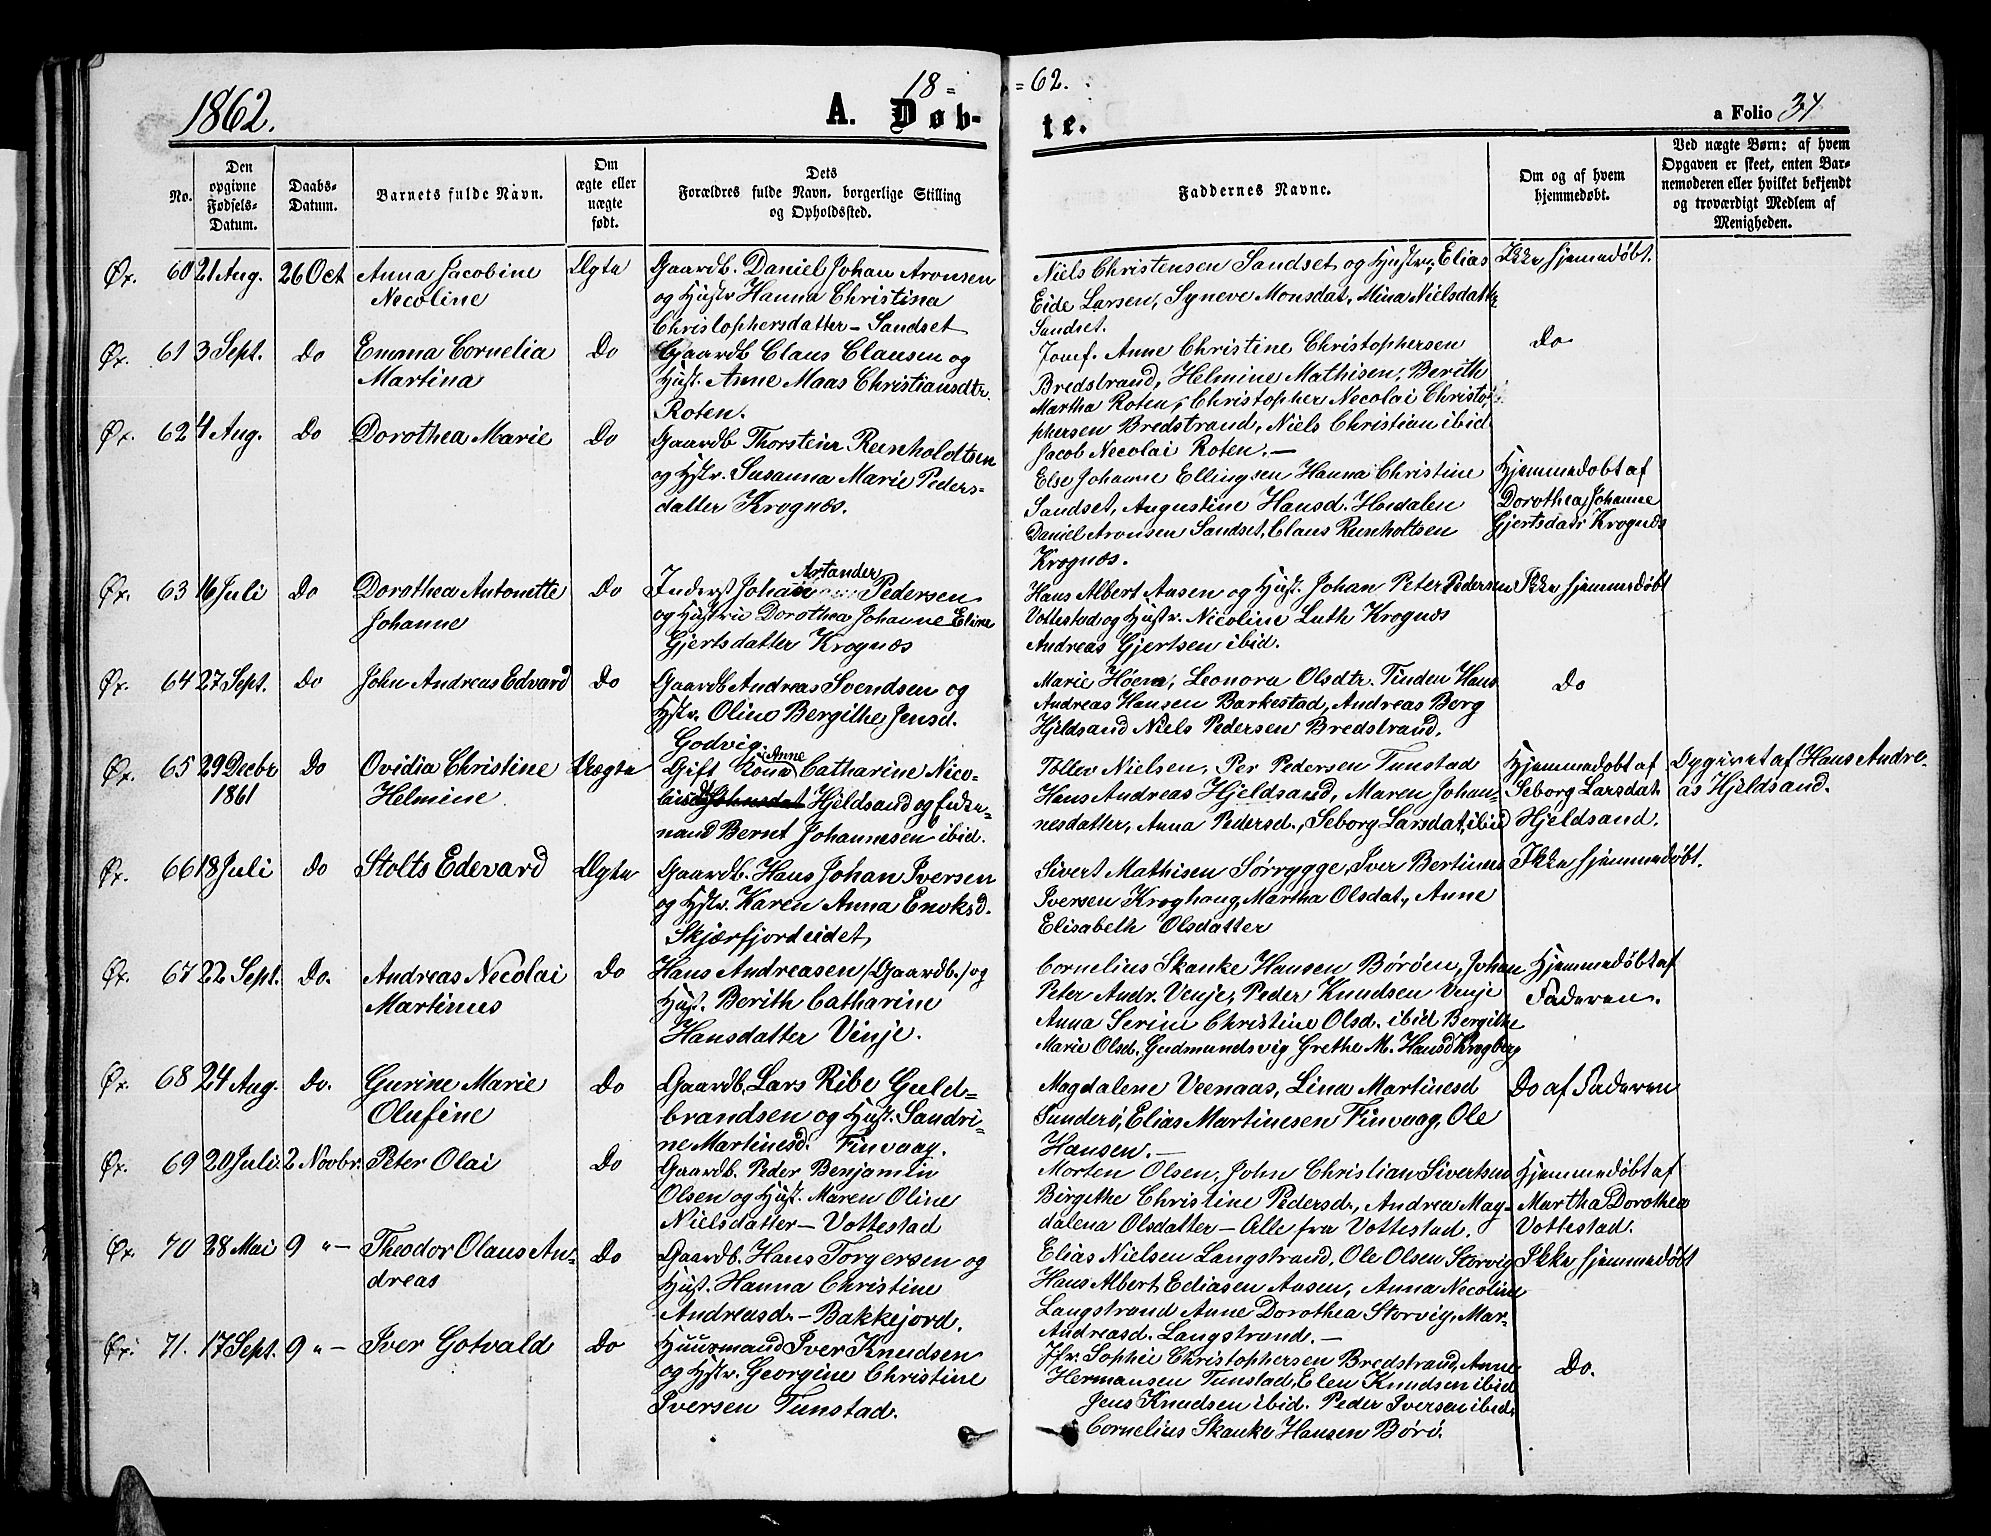 1862.
18=
=62.
A. Døb-
te.
a Folio 34
No.
Den
opgivne
Fødsels-
Datum.
Daabs-
Datum.
Barnets fulde Navn.
Om
ægte eller
uægte
født.
Dets
Forældres fulde Navn, borgerlige Stilling
og Opholdssted.
Faddernes Navne.
Om og af hvem
hjemmedøbt.
Ved uægte Børn: af hvem
Opgaven er skeet, enten Bar-
nemoderen eller hvilket bekjendt
og troværdigt Medlem af
Menigheden.
Øx. 60 21 Aug. 26 Oct Anna Jacobine Ægte Gaardb. Daniel Johan Aronsen
Necoline og Hustr Hanna Christina
Christophersdatter – Sandset
Niels Christensen Sandset og Hustru, Elias Ikke hjemmedøbt.
Eide Larsen, Syneve Monsdat, Mina Nielsdattr
Sandset.
Øx. 61 3 Sept. Do Emma Cornelia Do Gaardb Claus Clausen og
Martina Hust. Anne Maas Christiansdtr.
Roten.
Jomf. Anne Christine Christophersen Do
Bredstrand, Helmine Mathisen, Berith
Martha Roten, Christopher Necolai Christo-
phersen Bredstrand, Niels Christian ibid
Jacob Necolai Roten. –
Øx. 62 4 Aug. Do Dorothea Marie Do Gaardb Thorstein Reinholdtsen
og Hstr. Susanna Marie Peders-
datter Krognæs.
Else Johanne Ellingsen Hanna Christine Hjemmedøbt af
Sandset, Augustine Hansd. Hondalen Dorothea Johanne
Daniel Aronsen Sandset, Claus Reinholtsen Gjertsdatr Krognæs
Krognæs.
Øx. 63 16 Juli Do Dorothea Antonette Do Inderst Johan Artander Pedersen
Johanne og Hustru Dorothea Johanne Eline
Gjertsdatter Krognæs
Hans Albert Aasen og Hust. Johan Peter Pedersen Ikke hjemmedøbt
Vottestad og Hustr. Nicoline Luth Krognæs
Andreas Gjertsen ibid.
Øx. 64 27 Sept. Do John Andreas Edvard Do Gaardb Andreas Svendsen og
Hstr. Oline Bergithe Jensd.
Godvig.
Marie Hoem, Leonora Olsdtr. Tinden Hans Do
Andreas Hansen Barkestad, Andreas Berg
Hjeldsand Niels Pedersen Bredstrand.
Øx. 65 29 Decbr Do Ovidia Christine Uægte Gift Kone Anne Catharine Nico-
1861 Helmine Hjeldsand og Enke-
mand Bernt Johannesen ibid.
Tollev Nielsen, Per Pedersen Tunstad Hjemmedøbt af Opgivet af Hans Andre-
Hans Andreas Hjeldsand, Maren Johan- Seborg Larsdat. as Hjeldsand.
nesdatter, Anna Pedersd., Seborg Larsdat, ibid Hjeldsand.
Øx. 66 18 Juli Do Stolts Edevard Ægte Gaardb. Hans Johan Iversen
og Hstr. Karen Anna Enoksd.
Skjærfjordeidet
Sivert Mathisen Sørrygge, Iver Bertinus Ikke hjemmedøbt.
Iversen Kroghaug Martha Olsdat, Anne
Elisabeth Olsdatter
Øx. 67 22 Sept. Do. Andreas Necolai Do Hans Andreasen /Gaardb./ og
Martinus Hust. Berith Catharine
Hansdatter Vinje.
Cornelius Skanke Hansen Børøen, Johan Hjemmedøbt af
Peter Andr. Venje, Peder Knudsen Venje Faderen.
Anna Serine Christine Olsd. ibid Bergithe
Marie Olsd. Gudmundsvig Grethe M. Hansd Krogberg
Øx. 68 24 Aug. Do. Gurine Marie Do Gaardb. Lars Ribe Guld-
Olufine brandsen og Hust. Sandri-
ne Martinesd. Finvaag.
Magdalene Veenaas, Lina Martinesd Do af Faderen
Sunderö, Elias Martinesen Finvaag, Ole
Hansen. –
Øx. 69 20 Juli. 2 Novbr. Peter Olai Do Gaardb. Peder Benjamin
Olsen og Hust. Maren Oline
Nielsdatter – Vottestad
Morten Olsen, John Christian Sivertsen Hjemmedøbt af
Birgithe Christine Pedersd., Andrea Mag- Martha Dorothea
dalena Olsdatter – Alle fra Vottestad. Vottestad.
Øx. 70 28 Mai 9 " – Theodor Olaus An- Do Gaardb. Hans Torgersen og
dreas Hust. Hanna Christine
Andreasd. – Bakkejord.
Elias Nielsen Langstrand, Ole Olsen Storvig Ikke hjemmedøbt
Hans Albert Ediasen Aasen, Anna Necoline
Langstrand Anne Dorothea Storvig, Mar-
Andreasd. Langstrand. –
Øx. 71. 17 Sept. 9 " – Iver Gotvald Do Huusmand Iver Knudsen
og Hstr. Georgine Christine
Iversen Tunstad.
Jfr. Sophie Christophersen Bredstrand, Anne Do.
Hermansen Tunstad, Elen Knudsen ibid
Jens Knudsen ibid. Peder Iversen ibid.
Cornelius Skanke Hansen Børö.